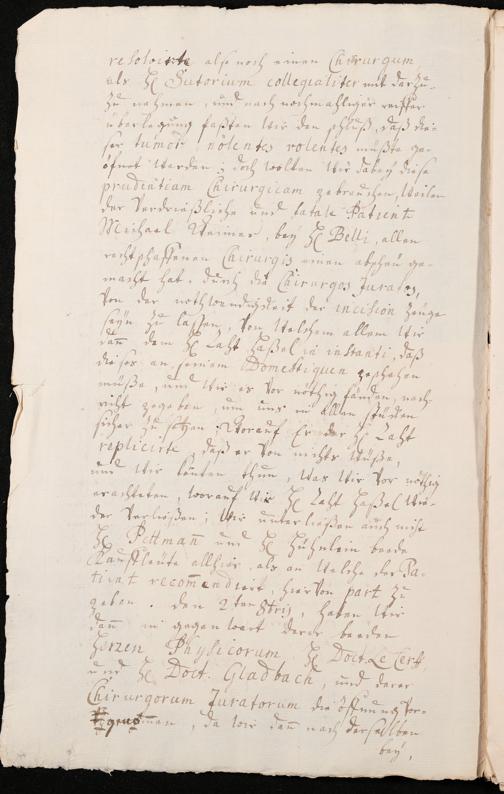 resolvirte also noch einen Chirurgum,
als H Sutorium collegialiter mit darzu-
zu nehmen, und nach nochmahliger reiffer
überlegung faßten wir den schluß, daß die-
ser tumor, nolentes volentes müßte ge-
öfnet werden; doch wolten wir dabey diese
prudentiam Chirurgicam gebrauchen, weilen
der Verdrießliche und fatale Patient
Michael Weimer, bey H Belli, allen
rechtschaffenen Chirurgis einen abscheu ge-
macht hat. durch die Chirurgos Juratos,
von der nothwendigkeit der incision zeuge
seyn zu lassen, von welchem allem wir
dann dem H in instanti, daß
dieses an seinem Domestiquen geschehen
müße, und wir es vor nöthig fänden, nach-
richt gegeben, um uns in allen stücken
sicher zu setzen. Worauf Er der H
replicirte, daß er von nichts wüste,
und wir könten thun, was wir vor nöthig
erachteten, worauf wir H wie-
der verließen; Wir unterließen auch nicht
H Pettmañ und H Hühnlein beede
Kauffleute allhier, als an welche der Pa-
tient recom̃endirt, hiervon part zu
geben. den 2ten 9bris, haben wir
dann in gegenwart derer beeden
Herzen Physicorum H Doct. Le Cerff
und H Doct. Gladbach, und derer
Chirurgorum Juratorum die öffnung vor-
genom̃en, da wir dann nach derselben
bey,